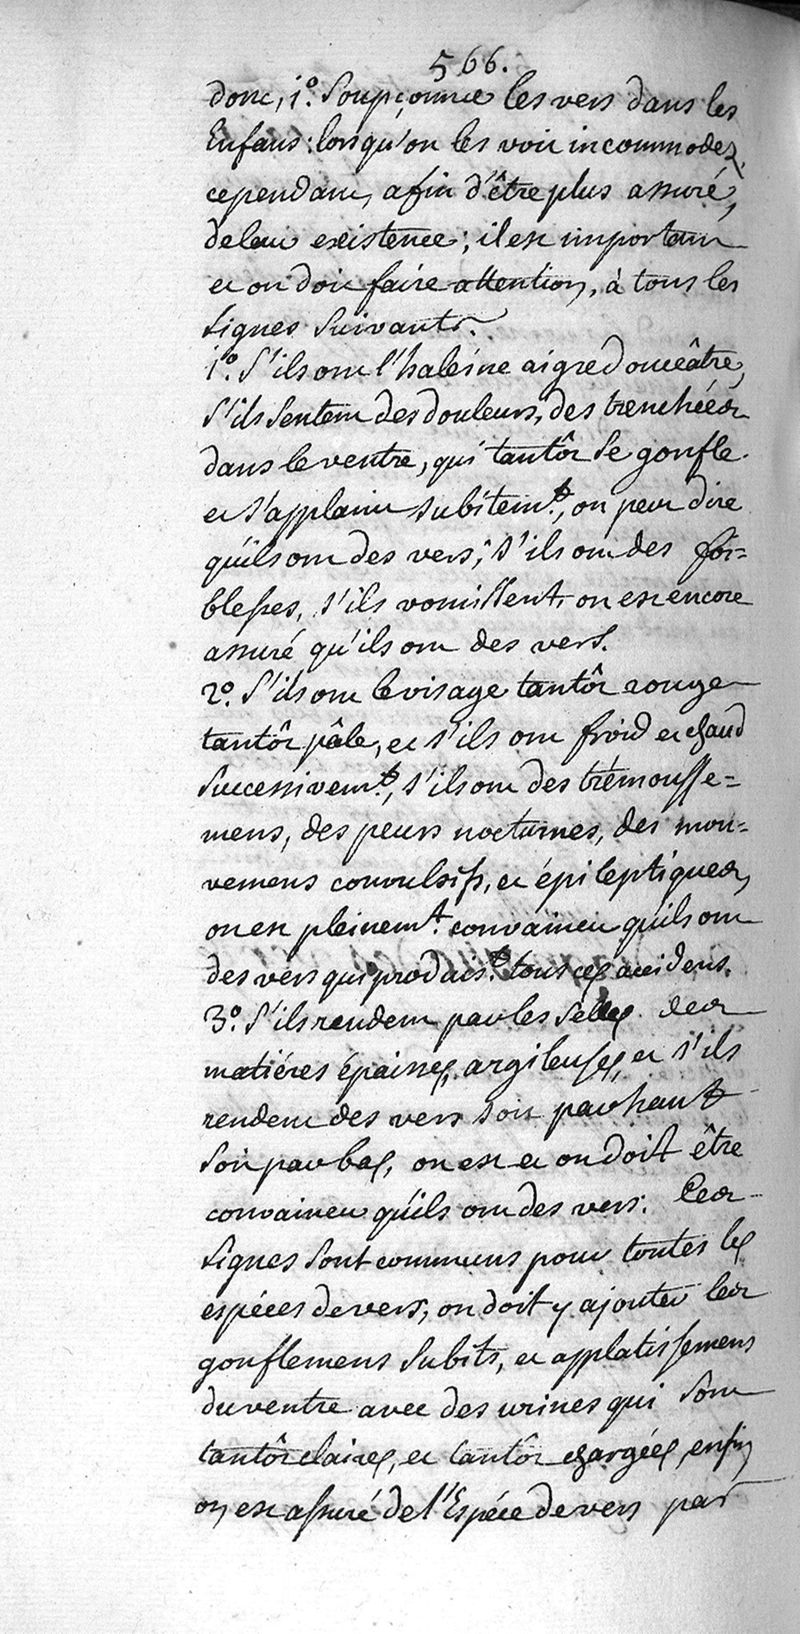 566.
donc, 1.° Soupçonner les vers dans les
Enfans: lorsqu'on les voit incommodez,
cependant, afin d'être plus assuré,
de leur existence; il est important
et on doit faire attention, à tous les
signes suivants.
1.° S'ils ont l'haleine aigre douceâtre,
s'ils sentent des douleurs, des trenchées
dans le ventre, qui tantôt se gonfle
et s'applanit subitem.t, on peut dire
qu'ils ont des vers, s'ils ont des foi=
blesses, s'ils vomissent, on est encore
assuré qu'ils ont des vers.
2.° S'ils ont le visage tantôt rouge
tantôt pâle, et s'ils ont froid et chaud
successivem.t, s'ils ont des trémousse=
mens, des peurs nocturnes, des mou=
vemens convulsifs, et épileptiques,
on est pleinem.t convaincu qu'ils ont
des vers qui produis.t tous ces accidens.
3.° S'ils rendent par les selles des
matiéres épaisses, argileuses, et s'ils
rendent des vers soit par haut
soit par bas, on est et on doit être
convaincu qu'ils ont des vers. Ces
signes sont communs pour toutes les
espéces de vers, on doit y ajouter les
gonflemens subits, et applatissemens
du ventre avec des urines qui sont
tantôt claires, et tantôt chargées, enfin
on est assuré de l'Espéce de vers par